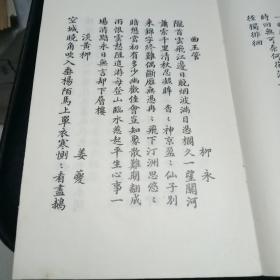 時回無可奈何
徑獨徘徊
曲玉管
柳永
隴首雲飛江邊日晚煙波滿目憑闌久一望關河
蕭索千里清秋忍凝眸杳〻神京盈〻仙子別
來錦字終難偶斷雁無憑冉〻飛下汀洲思悠〻
暗想當初有多少幽歡佳會豈知聚散難期翻成
雨恨雲愁阻追遊每登山臨水惹起平生心事一
場消黯永日無言却下層樓
淡黃柳
姜夔
空城曉角吹入垂楊陌馬上單衣寒惻〻看盡鵝